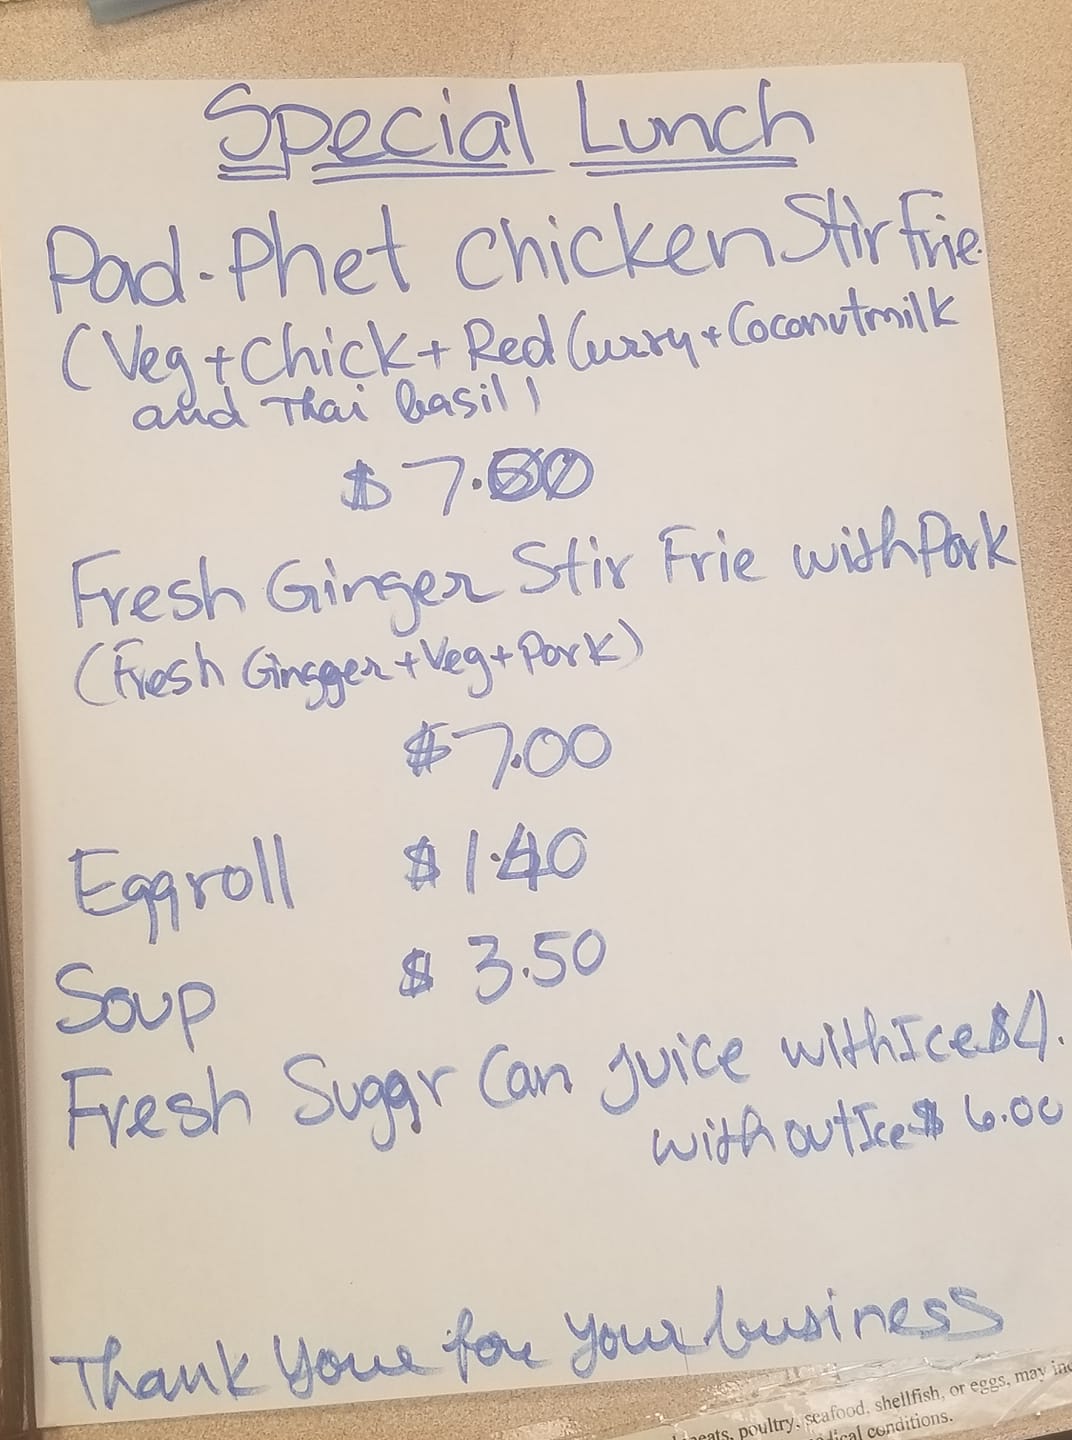 Special Lunch
Pad-Phet chicken Stir Frie
(Veg + Chick + Red Curry + Coconutmilk
and Thai basil)
$ 7.00
Fresh Ginger Stir Frie with Pork
(Fresh Gingger + Veg + Pork)
$7.00
Eggroll $ 1.40
Soup $ 3.50
Fresh Suggr Can Juice with Ice $4.
without Ice $ 6.00
Thank Youe for Your business
meats, poultry, seafood, shellfish, or eggs, may
conditions.